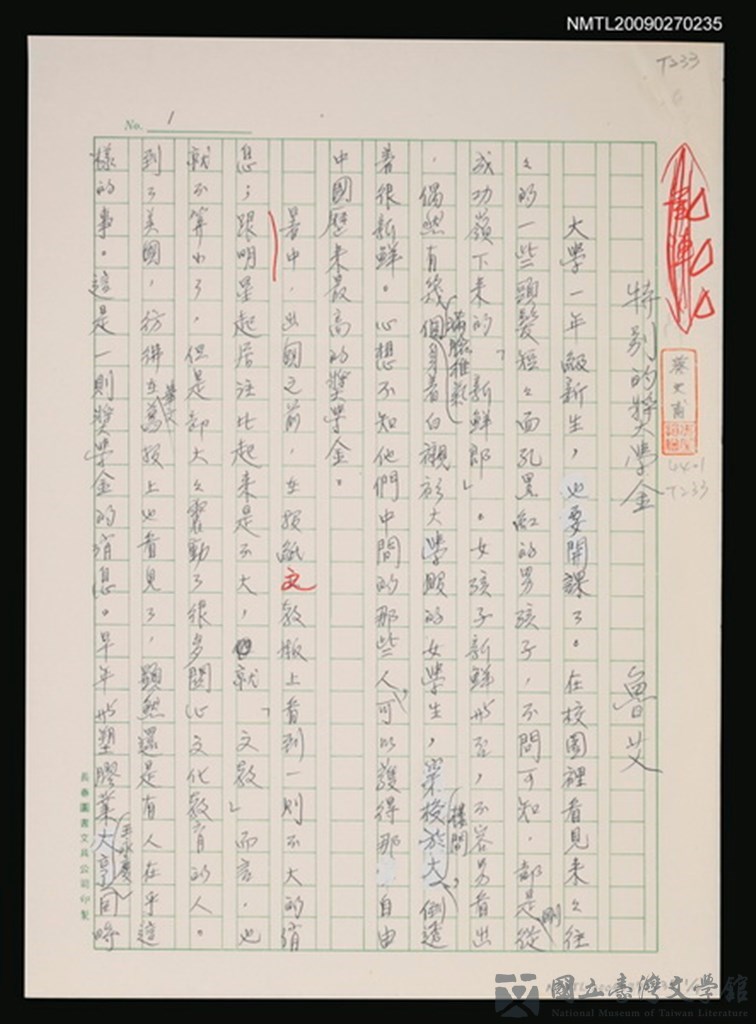 NMTL20090270235
T233
No. 1
亂陣
蔡文甫
4401
T233
特別的獎學金
魯艾
大學一年級新生，也要開課了。在校園裡看見來々往
々的一些頭髮短々面孔黑紅的男孩子，不問可知，都是剛從
成功嶺下來的「新鮮郎」。女孩子新鮮与否，不容易看出
，偶然有幾個滿臉稚氣身着白襯衫大學服的女學生，穿梭於大樓間，倒還
着很新鮮。心想不知他們中間的那些人，可以獲得那自由
中國歷來最高的獎學金。
暑中，出國之前，在報紙文教版上看到一則不大的消
息；跟明星起居注比起來是不大，就「文教」而言，也
就不算小了，但是却大々震動了很多關心文化教育的人。
到了美國，彷彿在華文報上也看見了，顯然還是有人在乎這
樣的事。這是一則獎學金的消息。早年与塑膠業大亨王永慶同時
長春圖書文具公司印製
國立臺灣文學館
National Museum of Taiwan Literature